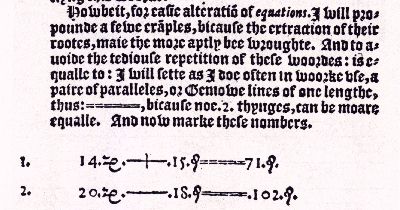 Howbeit, for easie alteratiō of equations. I will pro-
pounde a fewe exāples, bicause the extraction of their
rootes, maie the more aptly bee wroughte. And to a-
uoide the tediouse repetition of these woordes: is e-
qualle to: I will sette as I doe often in woorke vse, a
paire of paralleles, or Gemowe lines of one lengthe,
thus: =====, bicause noe. 2. thynges, can be moare
equalle. And now marke these nombers.
1. 14. ——+——. 15. =====71.
2. 20. ————. 18. =====. 102.